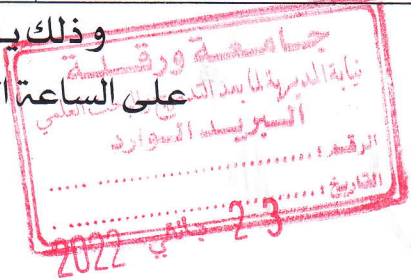 وذلك يـ
على الساعة ا
جامعة ورقلة
نيابة المديرية لما بعد التدرج
العلمي
البريد الوارد
الرقم:
التاريخ:
23 جانفي 2022